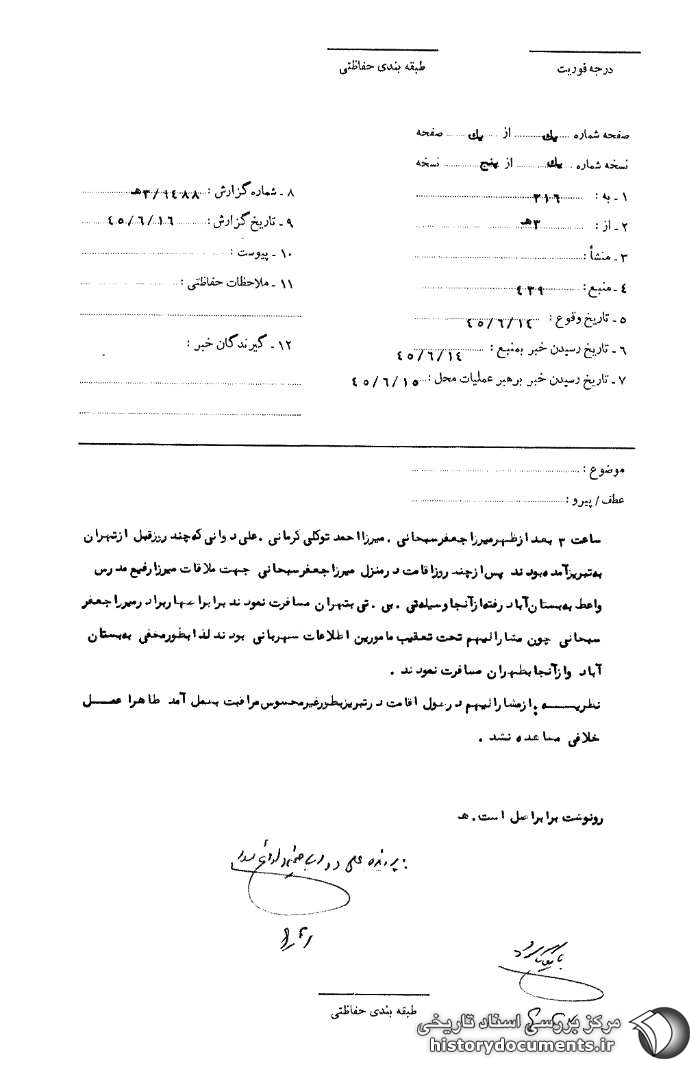 درجه فوریت
طبقه بندی حفاظتی
صفحه شماره یک از یک صفحه
نسخه شماره یک از پنج نسخه
۱ - به : ۳۱۶
۲ - از : ۳هـ
۳ - منشأ :
۴ - منبع : ۴۳۹
۵ - تاریخ وقوع : ۴۵/۶/۱۴
۶ - تاریخ رسیدن خبر بمنبع : ۴۵/۶/۱۴
۷ - تاریخ رسیدن خبر برهبر عملیات محل : ۴۵/۶/۱۵
۸ - شماره گزارش : ۳/۹۴۸۸هـ
۹ - تاریخ گزارش : ۴۵/۶/۱۶
۱۰ - پیوست :
۱۱ - ملاحظات حفاظتی :
۱۲ - گیرندگان خبر :
موضوع :
عطف/ پیرو :
ساعت ۳ بعد ازظهر میرزا جعفر سبحانی . میرزا احمد توکلی کرمانی . علی دوانی که چند روز قبل از تهران
به تبریز آمده بودند پس از چند روز اقامت در منزل میرزا جعفر سبحانی جهت ملاقات میرزا رفیع مدرس
واعظ به بستان آباد رفته از آنجا وسیله تی . بی . تی بتهران مسافرت نمودند برابر اظهار برادر میرزا جعفر
سبحانی چون مشارالیهم تحت تعقیب مامورین اطلاعات شهربانی بودند لذا بطور مخفی به بستان
آباد و از آنجا بطهران مسافرت نمودند .
نظریـــه : از مشارالیهم در طول اقامت در تبریز بطور غیر محسوس مراقبت بعمل آمد ظاهرا عمـــل
خلافی مشاهده نشد .
رونوشت برابر اصل است . هـ
پرونده علی دوانی
بایگانی شود
طبقه بندی حفاظتی
مرکز بررسی اسناد تاریخی
historydocuments.ir